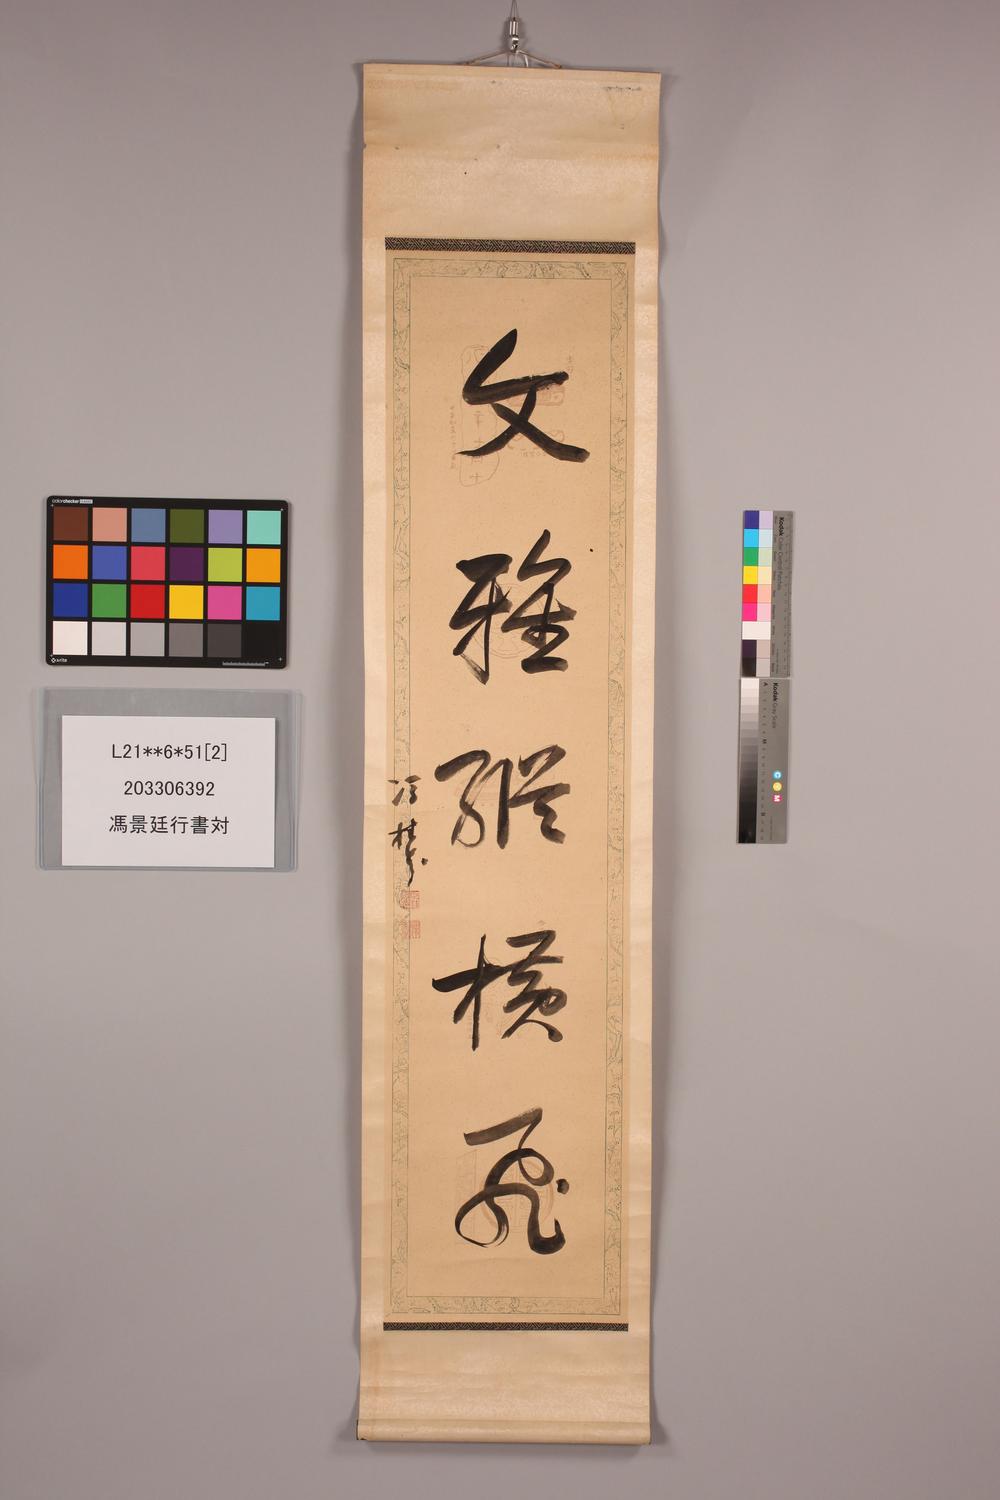 文雅縱橫飛
馮桂芬
colorchecker CLASSIC
x-rite
L21**6*51[2]
203306392
馮景廷行書対
Kodak Color Control Patches
Kodak Gray Scale
A
M
B
C
Y
M